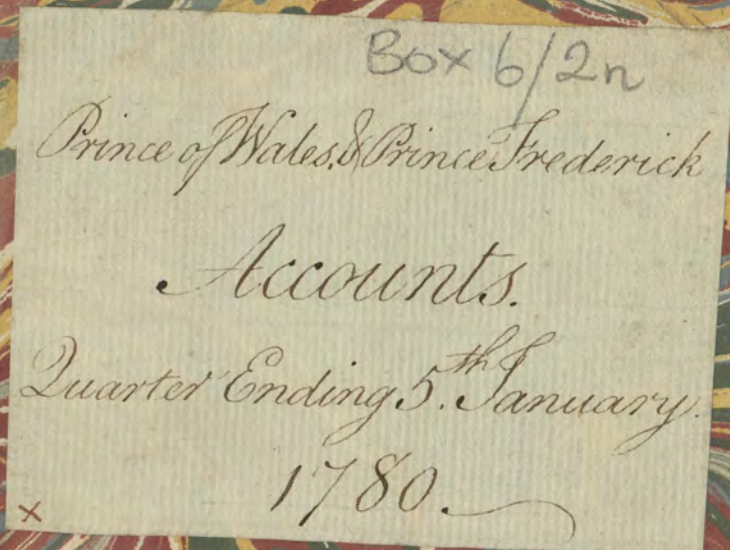 Box 6/2n
Prince of Wales. & Prince Frederick
Accounts.
Quarter Ending 5.th January.
1780.
x